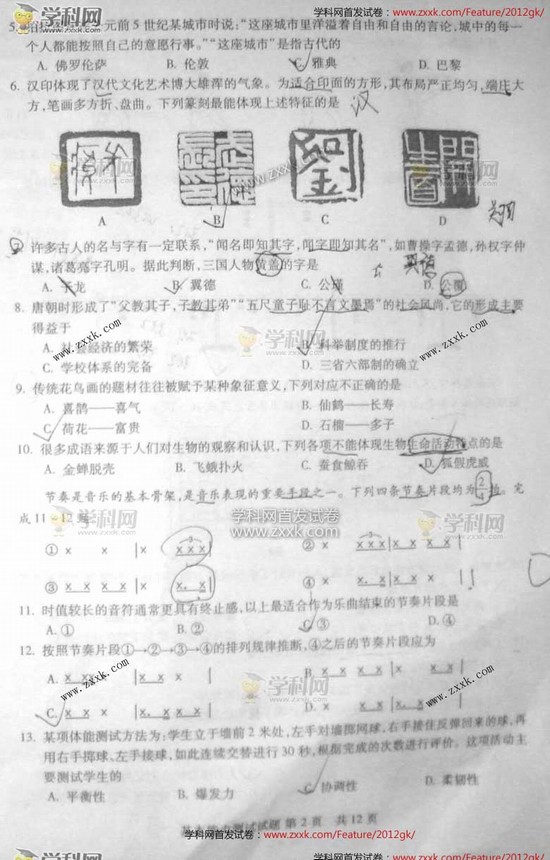 学科网首发试卷：www.zxxk.com/Feature/2012gk/
元前5世纪某城市时说：“这座城市里洋溢着自由和自由的言论，城中的每一
个人都能按照自己的意愿行事。”“这座城市”是指古代的
A. 佛罗伦萨 B. 伦敦 C. 雅典 D. 巴黎
6. 汉印体现了汉代文化艺术博大雄浑的气象。为适合印面的方形，其布局严正均匀，端庄大
方，笔画多方折、盘曲。下列篆刻最能体现上述特征的是
汉
A B C D
7. 许多古人的名与字有一定联系，“闻名即知其字，闻字即知其名”，如曹操字孟德，孙权字仲
谋，诸葛亮字孔明。据此判断，三国人物黄盖的字是
A. 子龙 B. 翼德 C. 公瑾 D. 公覆
8. 唐朝时形成了“父教其子，子教其弟”“五尺童子耻不言文墨焉”的社会风尚，它的形成主要
得益于
A. 社会经济的繁荣 B. 科举制度的推行
C. 学校体系的完备 D. 三省六部制的确立
9. 传统花鸟画的题材往往被赋予某种象征意义，下列对应不正确的是
A. 喜鹊——喜气 B. 仙鹤——长寿
C. 荷花——富贵 D. 石榴——多子
10. 很多成语来源于人们对生物的观察和认识，下列各项不能体现生物生命活动特点的是
A. 金蝉脱壳 B. 飞蛾扑火 C. 蚕食鲸吞 D. 狐假虎威
节奏是音乐的基本骨架，是音乐表现的重要手段之一。下列四条节奏片段均为2/4拍。完
成11-12题
① x x |x xxx| ② x x |x x x|
③ x x x x |x. x| ④ x x x x |x x x x|
11. 时值较长的音符通常更具有终止感，以上最适合作为乐曲结束的节奏片段是
A. ① B. ② C. ③ D. ④
12. 按照节奏片段①→②→③→④的排列规律推断，④之后的节奏片段应为
A. B.
C. D.
13. 某项体能测试方法为：学生立于墙前2米处，左手对墙掷网球，右手接住反弹回来的球，再
用右手掷球，左手接球，如此连续交替进行30秒，根据完成的次数进行评价。这项活动主
要测试学生的
A. 平衡性 B. 爆发力 C. 协调性 D. 柔韧性
基本能力测试试题 第2页 共12页
学科网首发试卷：www.zxxk.com/Feature/2012gk/